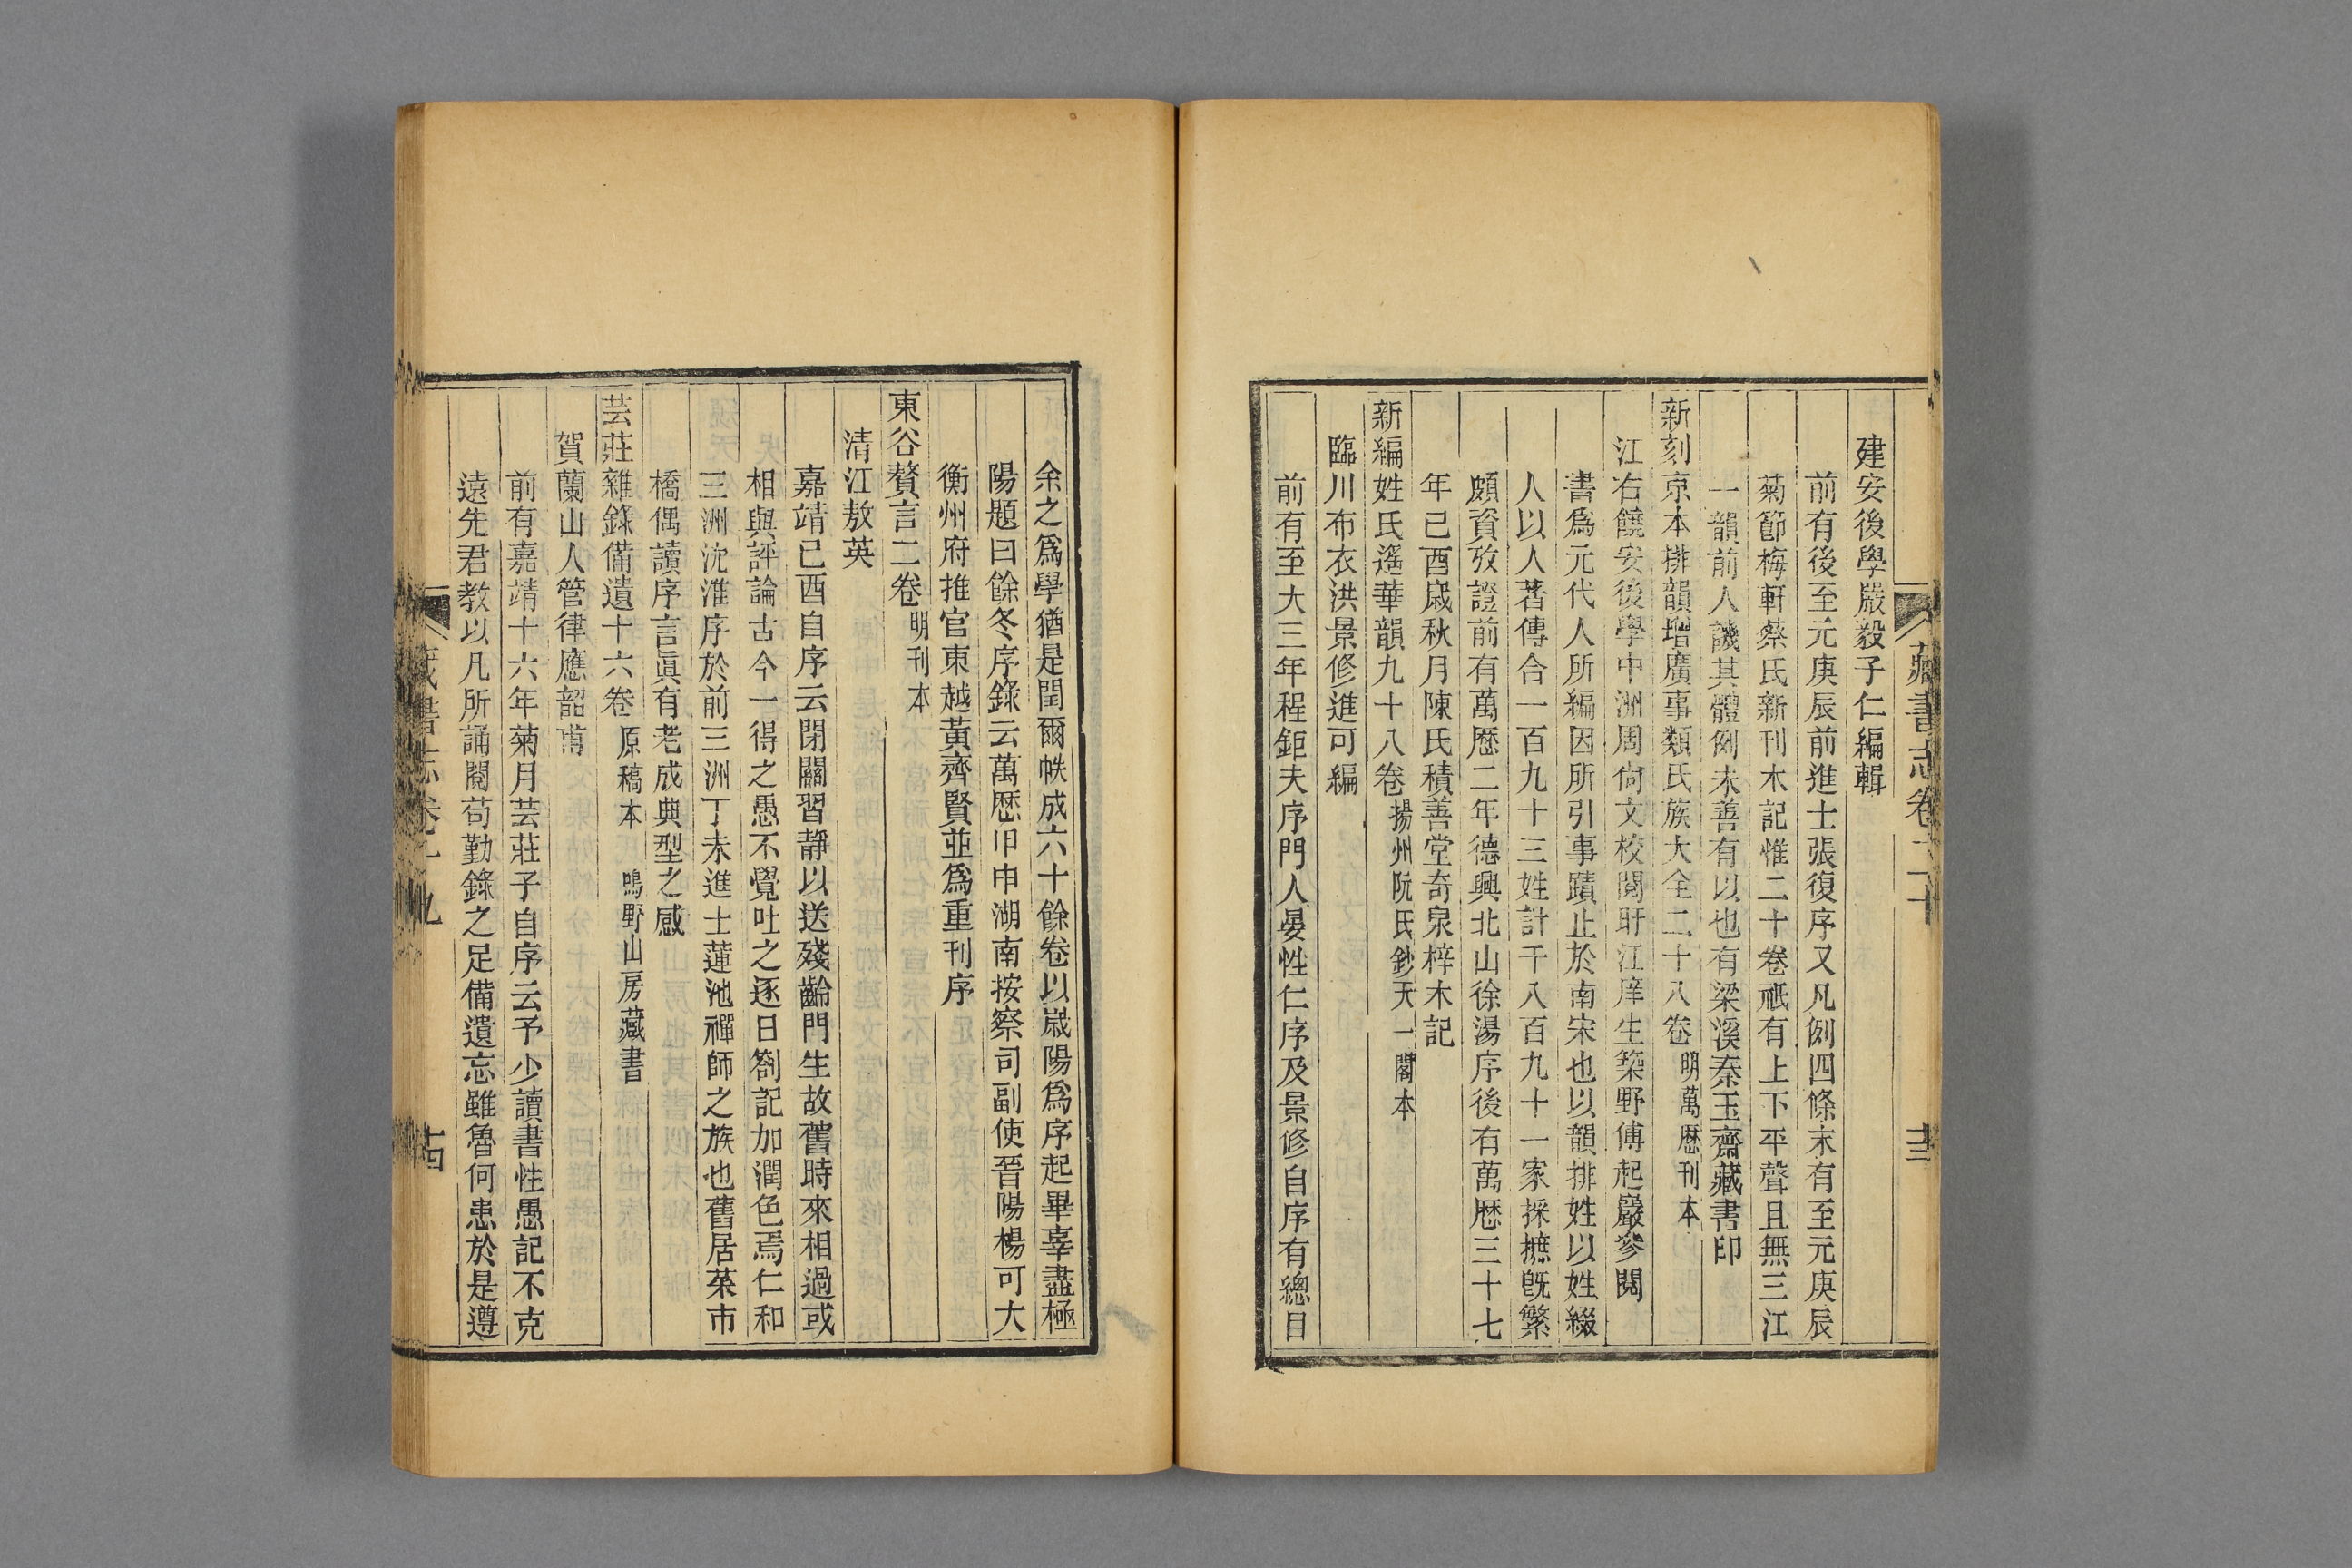 藏書志卷二十
建安後學嚴毅子仁編輯
前有後至元庚辰前進士張復序又凡例四條末有至元庚辰
菊節梅軒蔡氏新刊木記惟二十卷祇有上下平聲且無三江
一韻前人譏其體例未善有以也有梁溪秦玉齋藏書印
新刻京本排韻增廣事類氏族大全二十八卷 明萬歷刊本
江右饒安後學中洲周尙文校閱盱江庠生築野傅起巖參閱
書爲元代人所編因所引事蹟止於南宋也以韻排姓以姓綴
人以人著傳合一百九十三姓計千八百九十一家採摭旣繁
頗資攷證前有萬歷二年德興北山徐湯序後有萬歷三十七
年己酉歲秋月陳氏積善堂奇泉梓木記
新編姓氏遙華韻九十八卷 揚州阮氏鈔天一閣本
臨川布衣洪景修進可編
前有至大三年程鉅夫序門人晏性仁序及景修自序有總目
余之爲學猶是閏爾帙成六十餘卷以嵗陽爲序起畢辜盡極
陽題曰餘冬序錄云萬歷甲申湖南按察司副使晉陽楊可大
衡州府推官東越黃齊賢並爲重刊序
東谷贅言二卷 明刊本
清江敖英
嘉靖己酉自序云閉關習靜以送殘齡門生故舊時來相過或
相與評論古今一得之愚不覺吐之逐日劄記加潤色焉仁和
三洲沈淮序於前三洲丁未進士蓮池禪師之族也舊居菜市
橋偶讀序言眞有老成典型之感
芸莊雜錄備遺十六卷 原稿本 鳴野山房藏書
賀蘭山人管律應韶甫
前有嘉靖十六年菊月芸莊子自序云予少讀書性愚記不克
遠先君教以凡所誦閱苟勤錄之足備遺忘雖魯何患於是遵
藏書志卷十九